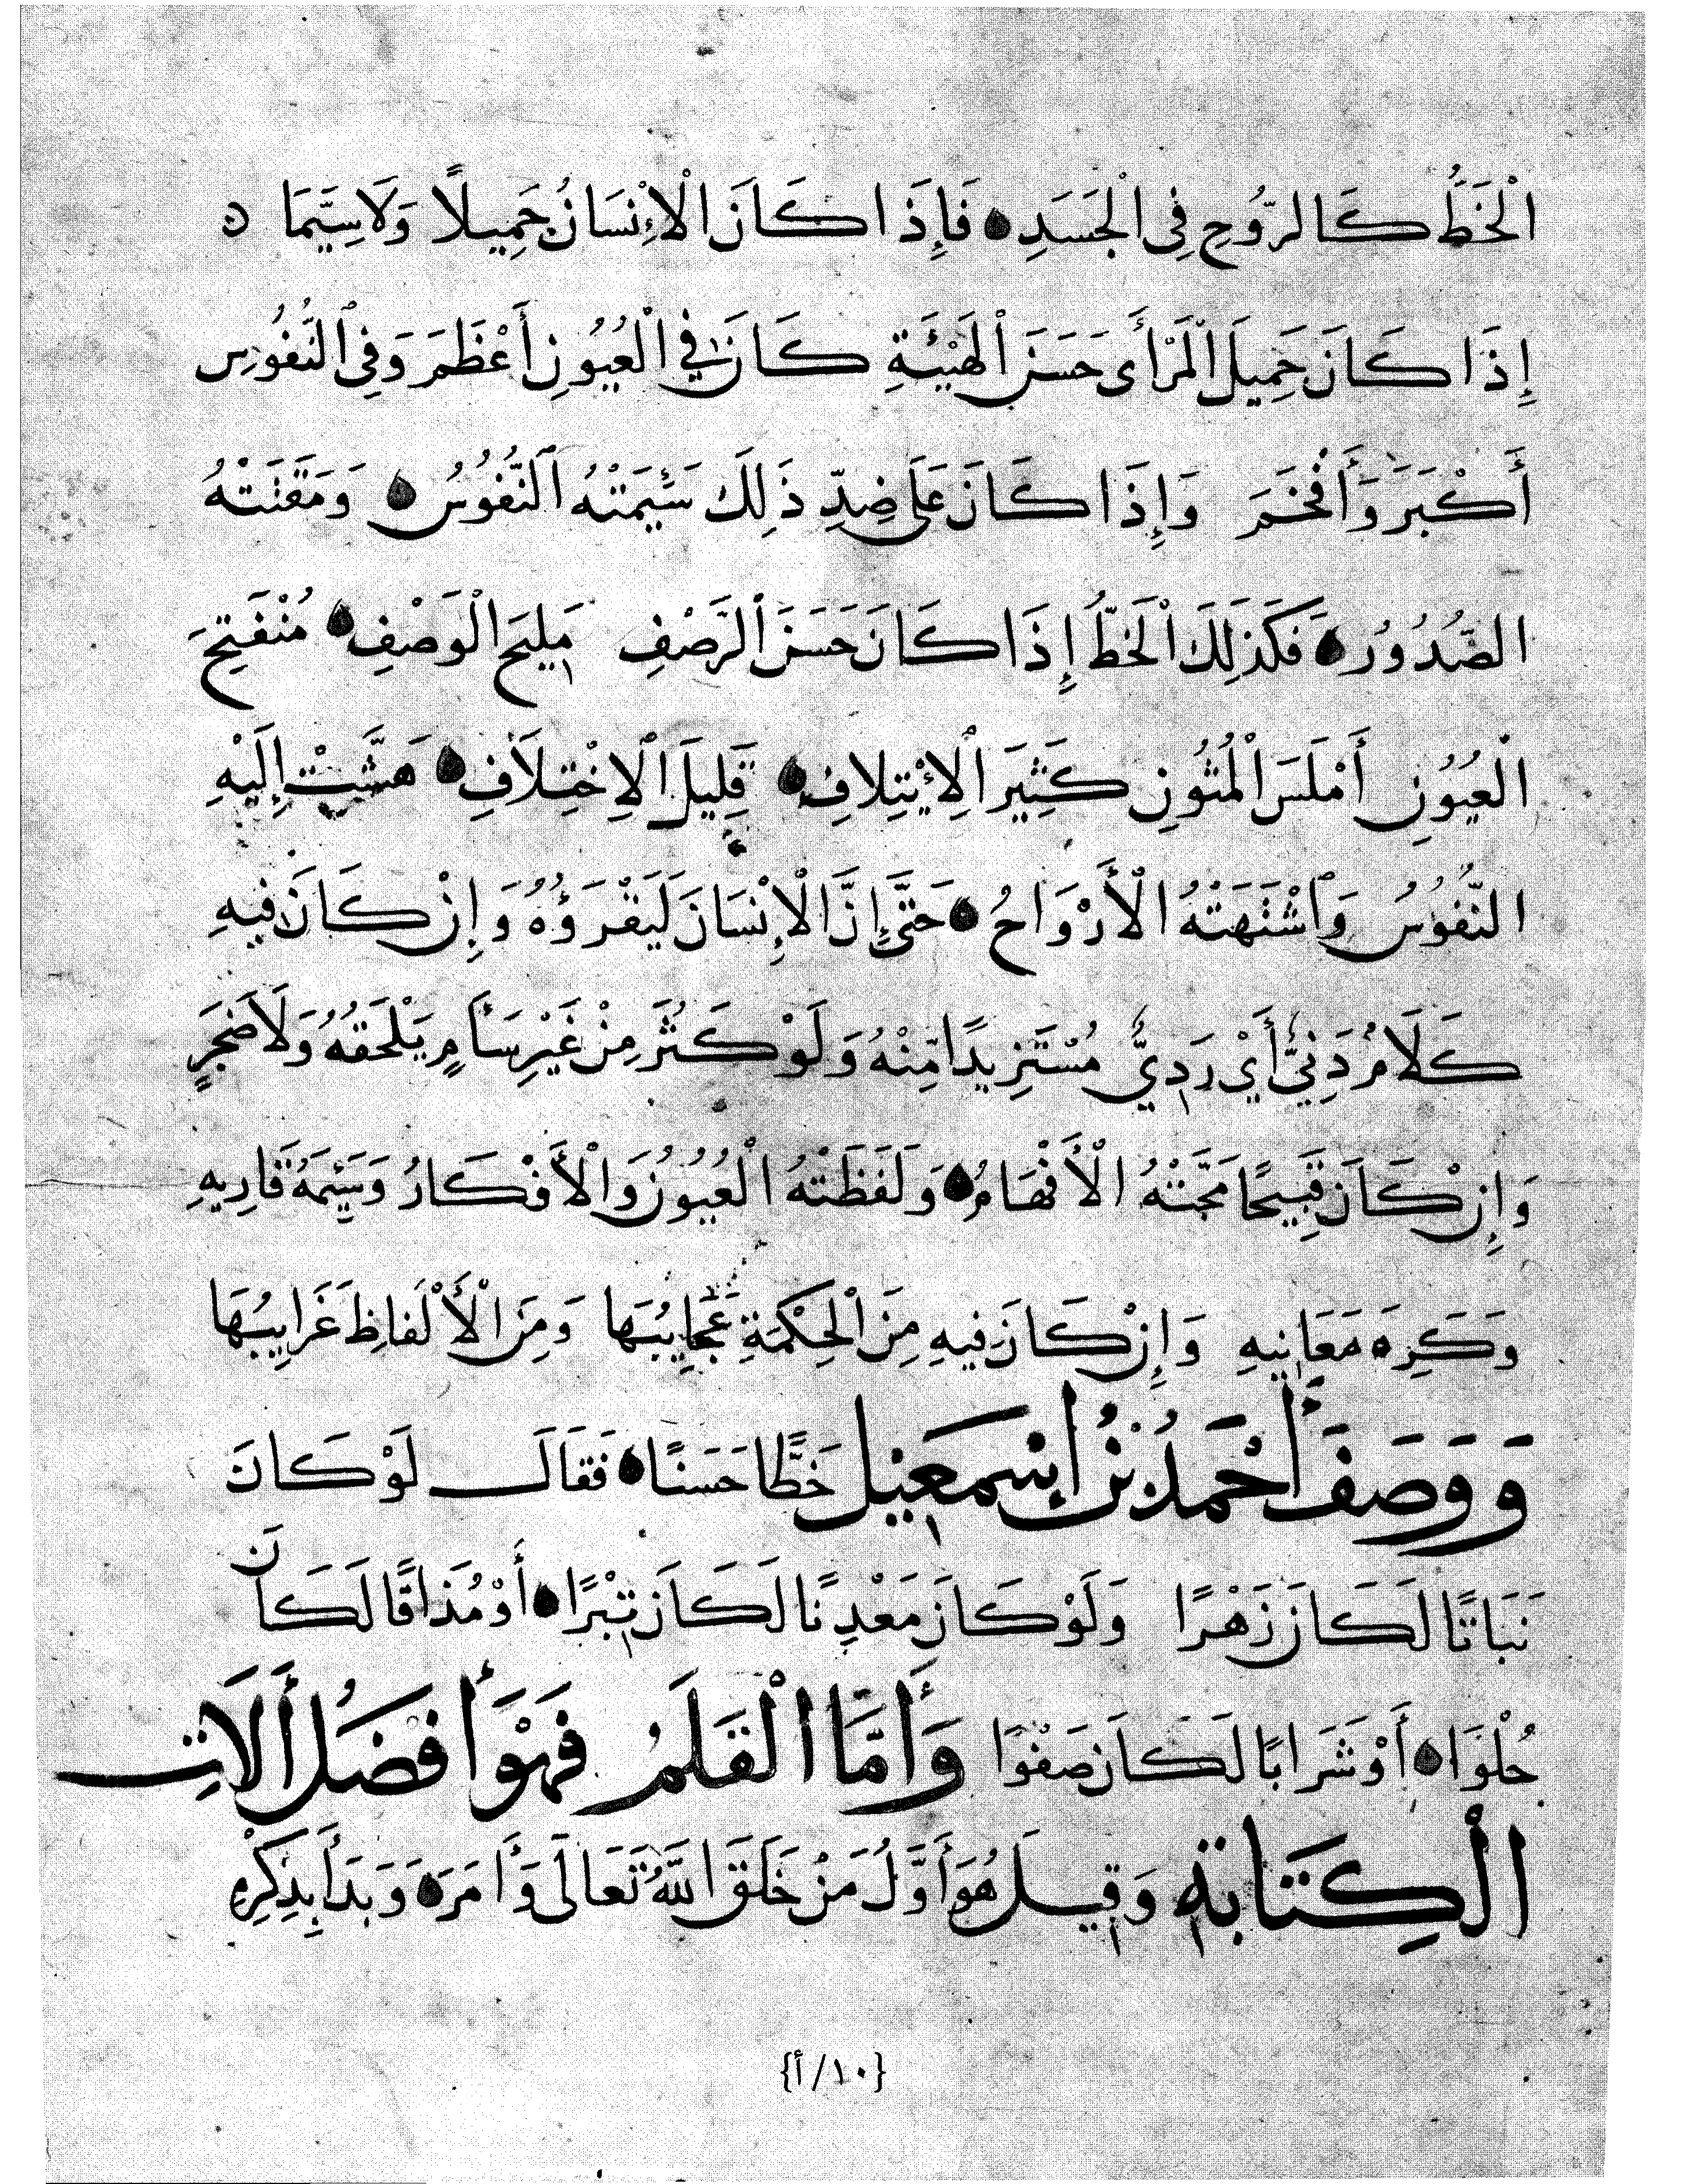 الْخَطُّ كَالرُّوحِ فِي الْجَسَدِ ۝ فَإِذَا كَانَ الْإِنْسَانُ جَمِيلًا وَلَاسِيَّمَا ه
إِذَا كَانَ جَمِيلَ الْمَرْأَى حَسَنَ ٱلْهَيْئَةِ كَانَ فِي الْعُيُونِ أَعْظَمَ وَفِي ٱلنُّفُوسِ
أَكْبَرَ وَأَفْخَمَ وَإِذَا كَانَ عَلَى ضِدِّ ذَلِكَ سَئِمَتْهُ ٱلنُّفُوسُ ۝ وَمَقَتَتْهُ
الصُّدُورُ ۝ فَكَذَلِكَ الْخَطُّ إِذَا كَانَ حَسَنَ ٱلرَّصْفِ مَلِيحَ الْوَصْفِ ۝ مُنْفَتِحَ
الْعُيُونِ أَمْلَسَ الْمُتُونِ كَثِيرَ ٱلِائْتِلَافِ ۝ قَلِيلَ ٱلِاخْتِلَافِ ۝ هَشَّتْ إِلَيْهِ
النُّفُوسُ وَٱشْتَهَتْهُ الْأَرْوَاحُ ۝ حَتَّى إِنَّ الْإِنْسَانَ لَيَقْرَؤُهُ وَإِنْ كَانَ فِيهِ
كَلَامٌ دَنِيٌّ أَيْ رَدِيٌّ مُسْتَزِيدًا مِنْهُ وَلَوْ كَثُرَ مِنْ غَيْرِ سَأَمٍ يَلْحَقُهُ وَلَا ضَجَرٍ
وَإِنْ كَانَ قَبِيحًا مَجَّتْهُ الْأَفْهَامُ ۝ وَلَفَظَتْهُ الْعُيُونُ وَالْأَفْكَارُ وَسَئِمَهُ قَارِيهِ
وَكَرِهَ مَعَانِيهِ وَإِنْ كَانَ فِيهِ مِنَ الْحِكْمَةِ عَجَايِبُهَا وَمِنَ الْأَلْفَاظِ غَرَايِبُهَا
وَوَصَفَ أَحْمَدُ بْنُ إِسْمَعِيلَ خَطًّا حَسَنًا ۝ فَقَالَ لَوْ كَانَ
نَبَاتًا لَكَانَ زَهْرًا وَلَوْ كَانَ مَعْدِنًا لَكَانَ تِبْرًا ۝ أَوْ مُذَاقًا لَكَانَ
حُلْوَا ۝ أَوْ شَرَابًا لَكَانَ صَفْوًا وَأَمَّا الْقَلَمُ فَهْوَ أَفْضَلُ أَلَاتِ
الْكِتَابَةِ وَقِيلَ هُوَ أَوَّلُ مَنْ خَلَقَ اللَّهُ تَعَالَى وَأَمَرَهُ ۝ وَبَدَأَ بِذِكْرِهِ
{١٠/أ}